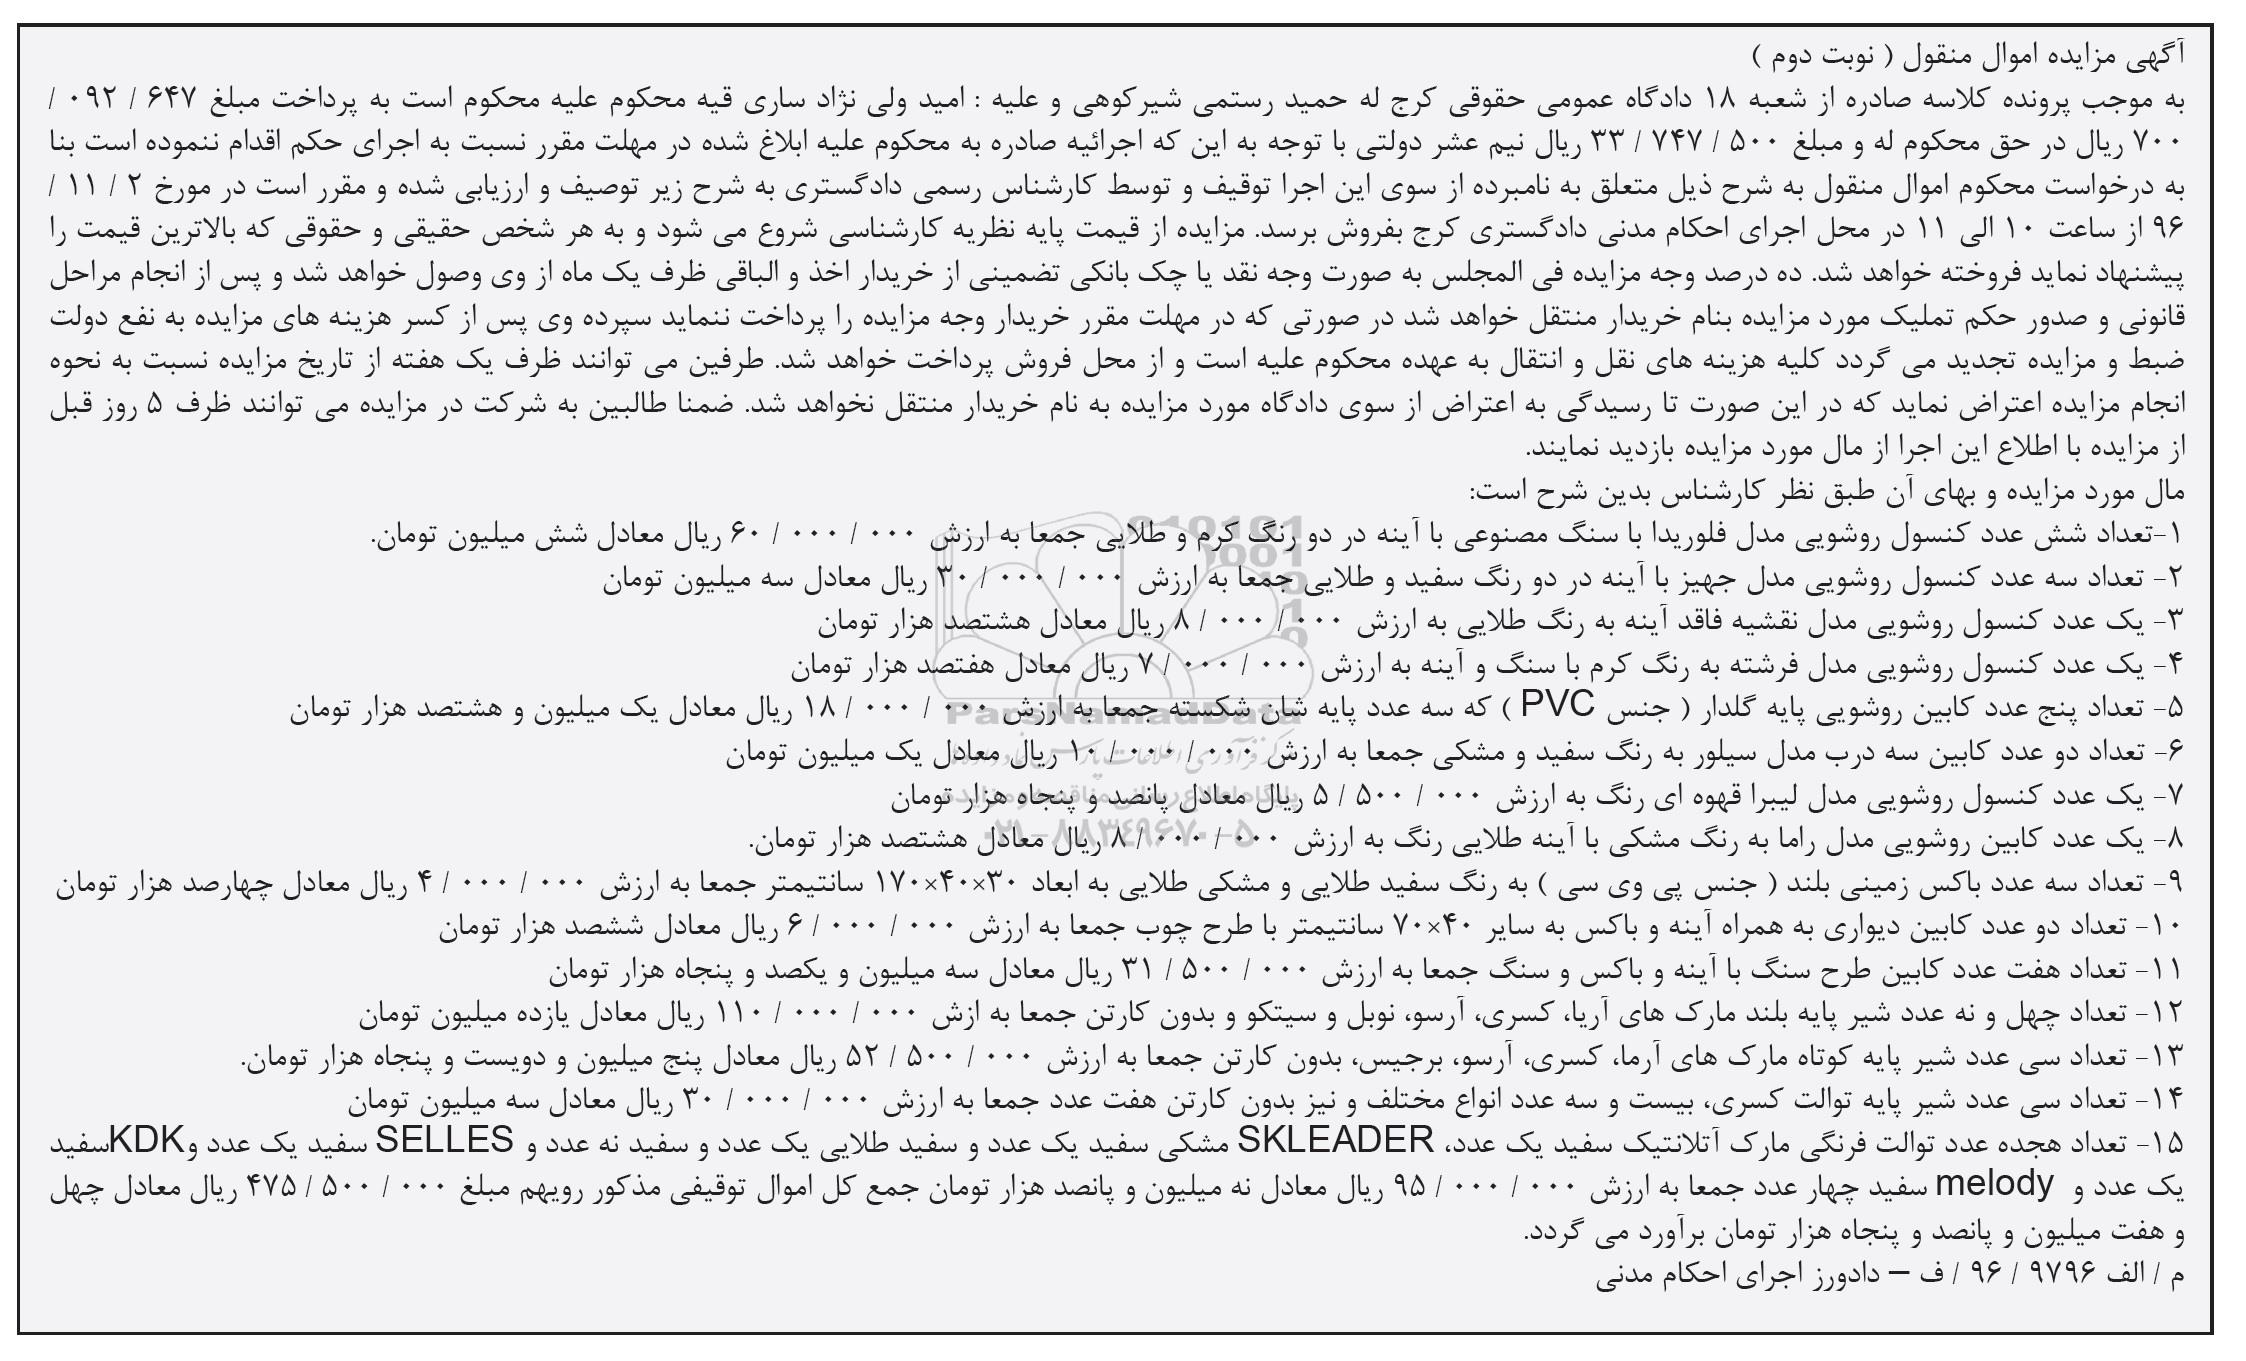 آگهی مزایده اموال منقول ( نوبت دوم )
به موجب پرونده کلاسه صادره از شعبه ۱۸ دادگاه عمومی حقوقی کرج له حمید رستمی شیرکوهی و علیه : امید ولی نژاد ساری قیه محکوم علیه محکوم است به پرداخت مبلغ ۶۴۷ / ۰۹۲ /
۷۰۰ ریال در حق محکوم له و مبلغ ۵۰۰ / ۷۴۷ / ۳۳ ریال نیم عشر دولتی با توجه به این که اجرائیه صادره به محکوم علیه ابلاغ شده در مهلت مقرر نسبت به اجرای حکم اقدام ننموده است بنا
به درخواست محکوم اموال منقول به شرح ذیل متعلق به نامبرده از سوی این اجرا توقیف و توسط کارشناس رسمی دادگستری به شرح زیر توصیف و ارزیابی شده و مقرر است در مورخ ۲ / ۱۱ /
۹۶ از ساعت ۱۰ الی ۱۱ در محل اجرای احکام مدنی دادگستری کرج بفروش برسد. مزایده از قیمت پایه نظریه کارشناسی شروع می شود و به هر شخص حقیقی و حقوقی که بالاترین قیمت را
پیشنهاد نماید فروخته خواهد شد. ده درصد وجه مزایده فی المجلس به صورت وجه نقد یا چک بانکی تضمینی از خریدار اخذ و الباقی ظرف یک ماه از وی وصول خواهد شد و پس از انجام مراحل
قانونی و صدور حکم تملیک مورد مزایده بنام خریدار منتقل خواهد شد در صورتی که در مهلت مقرر خریدار وجه مزایده را پرداخت ننماید سپرده وی پس از کسر هزینه های مزایده به نفع دولت
ضبط و مزایده تجدید می گردد کلیه هزینه های نقل و انتقال به عهده محکوم علیه است و از محل فروش پرداخت خواهد شد. طرفین می توانند ظرف یک هفته از تاریخ مزایده نسبت به نحوه
انجام مزایده اعتراض نماید که در این صورت تا رسیدگی به اعتراض از سوی دادگاه مورد مزایده به نام خریدار منتقل نخواهد شد. ضمنا طالبین به شرکت در مزایده می توانند ظرف ۵ روز قبل
از مزایده با اطلاع این اجرا از مال مورد مزایده بازدید نمایند.
مال مورد مزایده و بهای آن طبق نظر کارشناس بدین شرح است:
۱-تعداد شش عدد کنسول روشویی مدل فلوریدا با سنگ مصنوعی با آینه در دو رنگ کرم و طلایی جمعا به ارزش ۰۰۰ / ۰۰۰ / ۶۰ ریال معادل شش میلیون تومان.
۲- تعداد سه عدد کنسول روشویی مدل جهیز با آینه در دو رنگ سفید و طلایی جمعا به ارزش ۰۰۰ / ۰۰۰ / ۳۰ ریال معادل سه میلیون تومان
۳- یک عدد کنسول روشویی مدل نقشیه فاقد آینه به رنگ طلایی به ارزش ۰۰۰ / ۰۰۰ / ۸ ریال معادل هشتصد هزار تومان
۴- یک عدد کنسول روشویی مدل فرشته به رنگ کرم با سنگ و آینه به ارزش ۰۰۰ / ۰۰۰ / ۷ ریال معادل هفتصد هزار تومان
۵- تعداد پنج عدد کابین روشویی پایه گلدار ( جنس PVC ) که سه عدد پایه شان شکسته جمعا به ارزش ۰۰۰ / ۰۰۰ / ۱۸ ریال معادل یک میلیون و هشتصد هزار تومان
ParsNamadData
۶- تعداد دو عدد کابین سه درب مدل سیلور به رنگ سفید و مشکی جمعا به ارزش ۰۰۰ / ۰۰۰ / ۱۰ ریال معادل یک میلیون تومان
۷- یک عدد کنسول روشویی مدل لیبرا قهوه ای رنگ به ارزش ۰۰۰ / ۵۰۰ / ۵ ریال معادل پانصد و پنجاه هزار تومان
پایگاه اطلاع رسانی مناقصه و مزایده
۸- یک عدد کابین روشویی مدل راما به رنگ مشکی با آینه طلایی رنگ به ارزش ۰۰۰ / ۰۰۰ / ۸ ریال معادل هشتصد هزار تومان.
۰۲۱-۸۸۳۴۹۶۷۰-۵
۹- تعداد سه عدد باکس زمینی بلند ( جنس پی وی سی ) به رنگ سفید طلایی و مشکی طلایی به ابعاد ۳۰×۴۰×۱۷۰ سانتیمتر جمعا به ارزش ۰۰۰ / ۰۰۰ / ۴ ریال معادل چهارصد هزار تومان
۱۰- تعداد دو عدد کابین دیواری به همراه آینه و باکس به سایر ۴۰×۷۰ سانتیمتر با طرح چوب جمعا به ارزش ۰۰۰ / ۰۰۰ / ۶ ریال معادل ششصد هزار تومان
۱۱- تعداد هفت عدد کابین طرح سنگ با آینه و باکس و سنگ جمعا به ارزش ۰۰۰ / ۵۰۰ / ۳۱ ریال معادل سه میلیون و یکصد و پنجاه هزار تومان
۱۲- تعداد چهل و نه عدد شیر پایه بلند مارک های آریا، کسری، آرسو، نوبل و سیتکو و بدون کارتن جمعا به ازش ۰۰۰ / ۰۰۰ / ۱۱۰ ریال معادل یازده میلیون تومان
۱۳- تعداد سی عدد شیر پایه کوتاه مارک های آرما، کسری، آرسو، برجیس، بدون کارتن جمعا به ارزش ۰۰۰ / ۵۰۰ / ۵۲ ریال معادل پنج میلیون و دویست و پنجاه هزار تومان.
۱۴- تعداد سی عدد شیر پایه توالت کسری، بیست و سه عدد انواع مختلف و نیز بدون کارتن هفت عدد جمعا به ارزش ۰۰۰ / ۰۰۰ / ۳۰ ریال معادل سه میلیون تومان
۱۵- تعداد هجده عدد توالت فرنگی مارک آتلانتیک سفید یک عدد، SKLEADER مشکی سفید یک عدد و سفید طلایی یک عدد و سفید نه عدد و SELLES سفید یک عدد و KDK سفید
یک عدد و melody سفید چهار عدد جمعا به ارزش ۰۰۰ / ۰۰۰ / ۹۵ ریال معادل نه میلیون و پانصد هزار تومان جمع کل اموال توقیفی مذکور رویهم مبلغ ۰۰۰ / ۵۰۰ / ۴۷۵ ریال معادل چهل
و هفت میلیون و پانصد و پنجاه هزار تومان برآورد می گردد.
م / الف ۹۷۹۶ / ۹۶ / ف – دادورز اجرای احکام مدنی